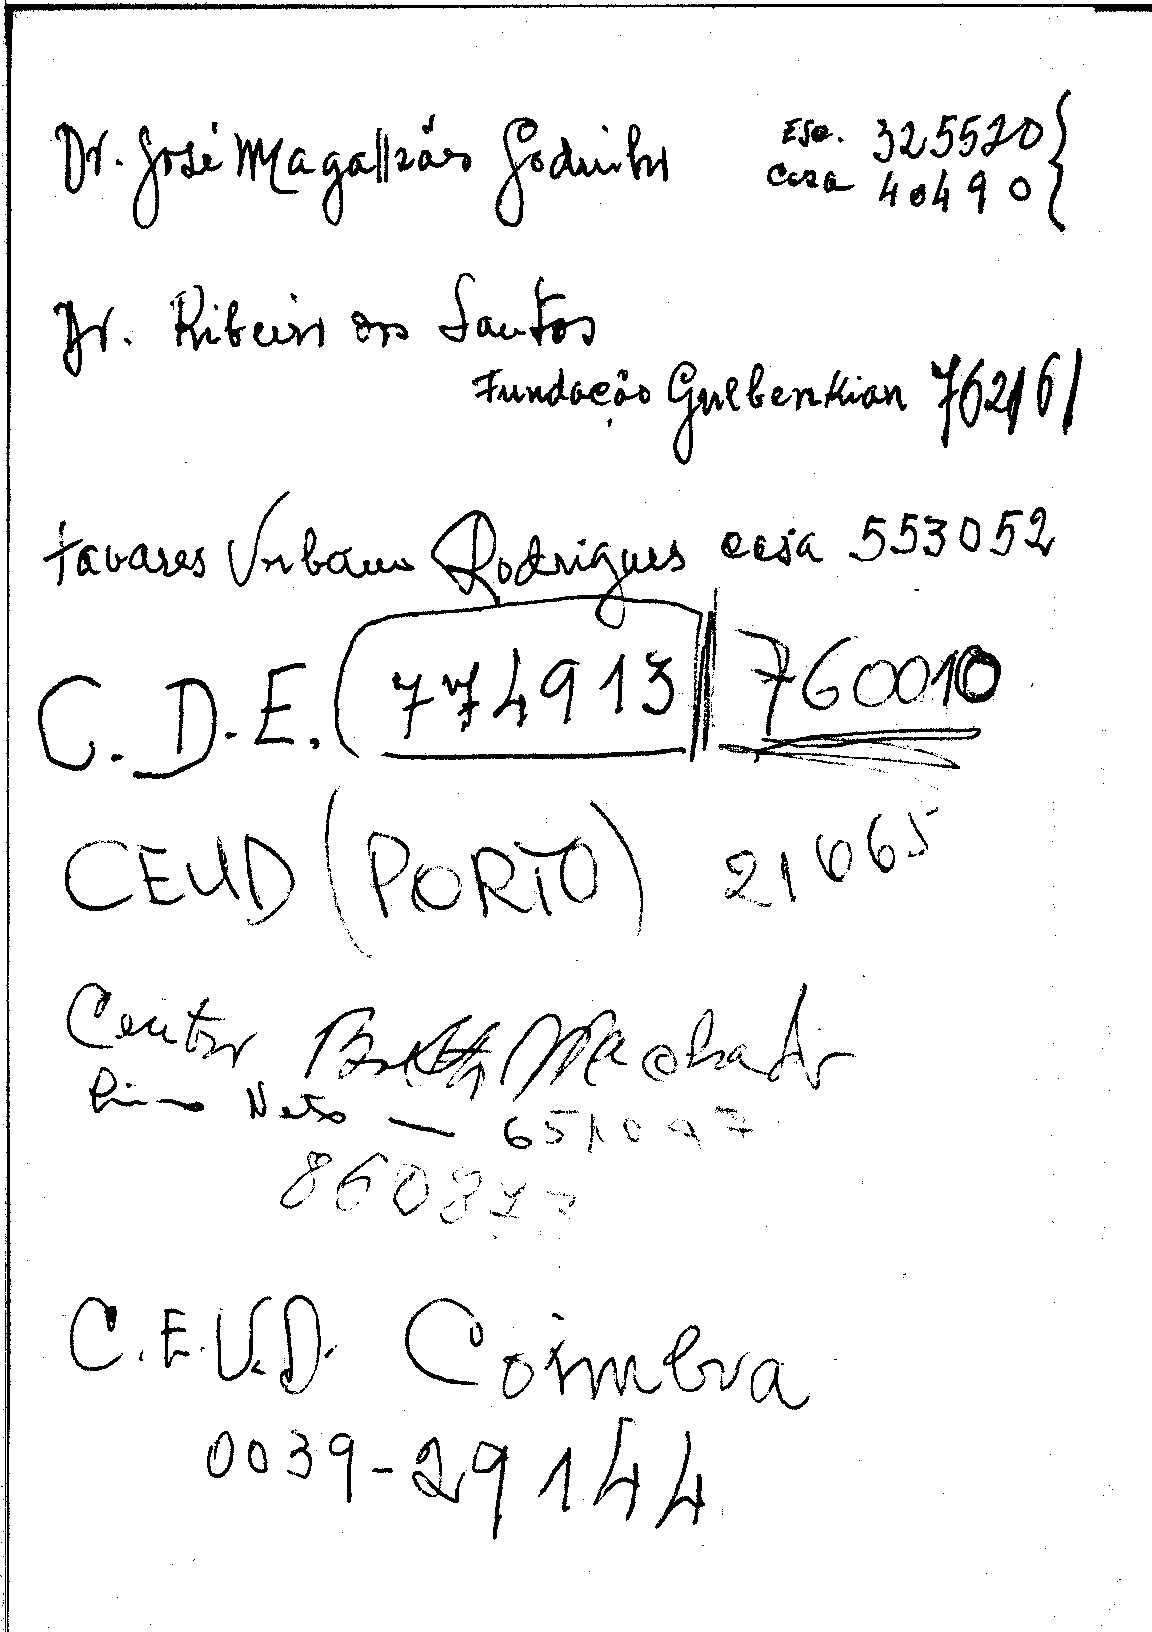 Dr. José Magalhães Godinho Esc. 325520
Casa 40490
Dr. Ribeiro dos Santos
Fundação Gulbenkian 762161
Tavares Urbano Rodrigues casa 553052
C. D. E. 774913 760010
CEUD (PORTO) 21665
Centro Machado
Neto — 651097
8608
C.E.U.D. Coimbra
0039-29144